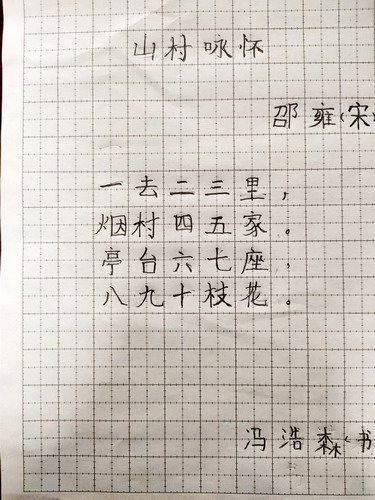 山村咏怀
邵雍（宋）
一去二三里，
烟村四五家。
亭台六七座，
八九十枝花。
冯浩森（书